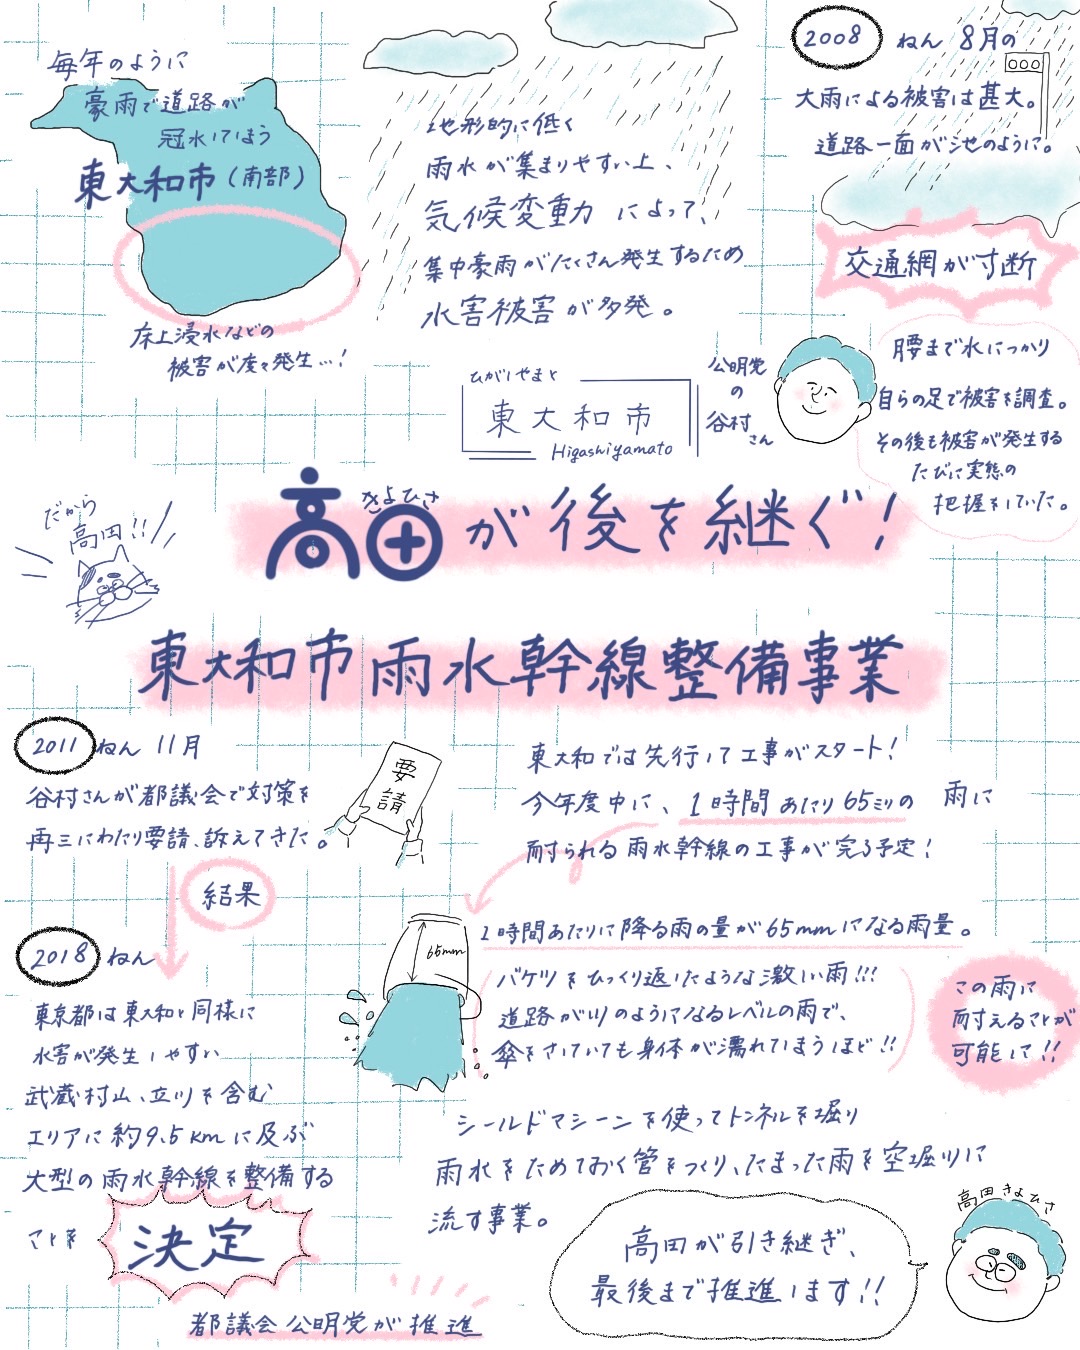 毎年のように
豪雨で道路が
冠水してしまう
東大和市(南部)
床上浸水などの
被害が度々発生…!
地形的に低く
雨水が集まりやすい上、
気候変動によって、
集中豪雨がたくさん発生するため
水害被害が多発。
2008ねん 8月の
大雨による被害は甚大。
道路一面が池のように。
交通網が寸断
ひがしやまと
東大和市
Higashiyamato
公明党
の
谷村
さん
腰まで水につかり
自らの足で被害を調査。
その後も被害が発生する
たびに実態の
把握をしていた。
だから
高田!!
きよひさ
高田が後を継ぐ!
東大和市雨水幹線整備事業
2011ねん 11月
谷村さんが都議会で対策を
再三にわたり要請、訴えてきた。
要
請
結果
2018ねん
東京都は東大和と同様に
水害が発生しやすい
武蔵村山、立川を含む
エリアに約9.5kmに及ぶ
大型の雨水幹線を整備する
ことを
決定
都議会公明党が推進
東大和では先行して工事がスタート!
今年度中に、1時間あたり65ミリの雨に
耐られる雨水幹線の工事が完了予定!
1時間あたりに降る雨の量が65mmになる雨量。
65mm
バケツをひっくり返したような激しい雨!!!
道路が川のようになるレベルの雨で、
傘をさしていても身体が濡れてしまうほど!!
この雨に
耐えることが
可能に!!
シールドマシーンを使ってトンネルを堀り
雨水をためておく管をつくり、たまった雨を空堀川に
流す事業。
高田が引き継ぎ、
最後まで推進します!!
高田きよひさ